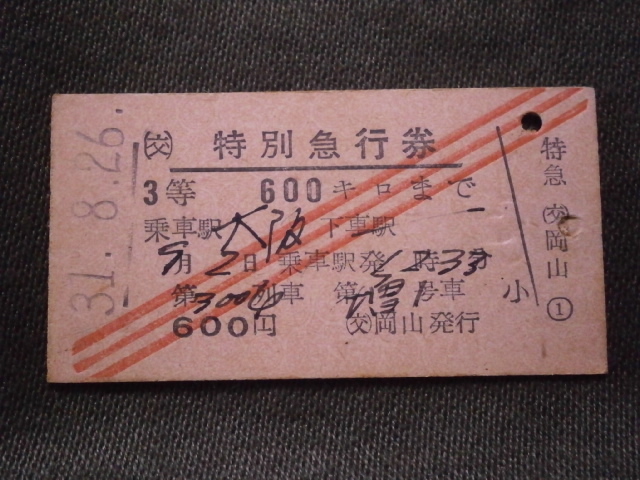 31.8.26.
㊋交 特別急行券
3等 600キロまで
乗車駅 大阪 下車駅
9月2日 乗車駅発 時33分
第3004列車 第 号車
600円 交岡山発行
小
特急 交岡山 ①